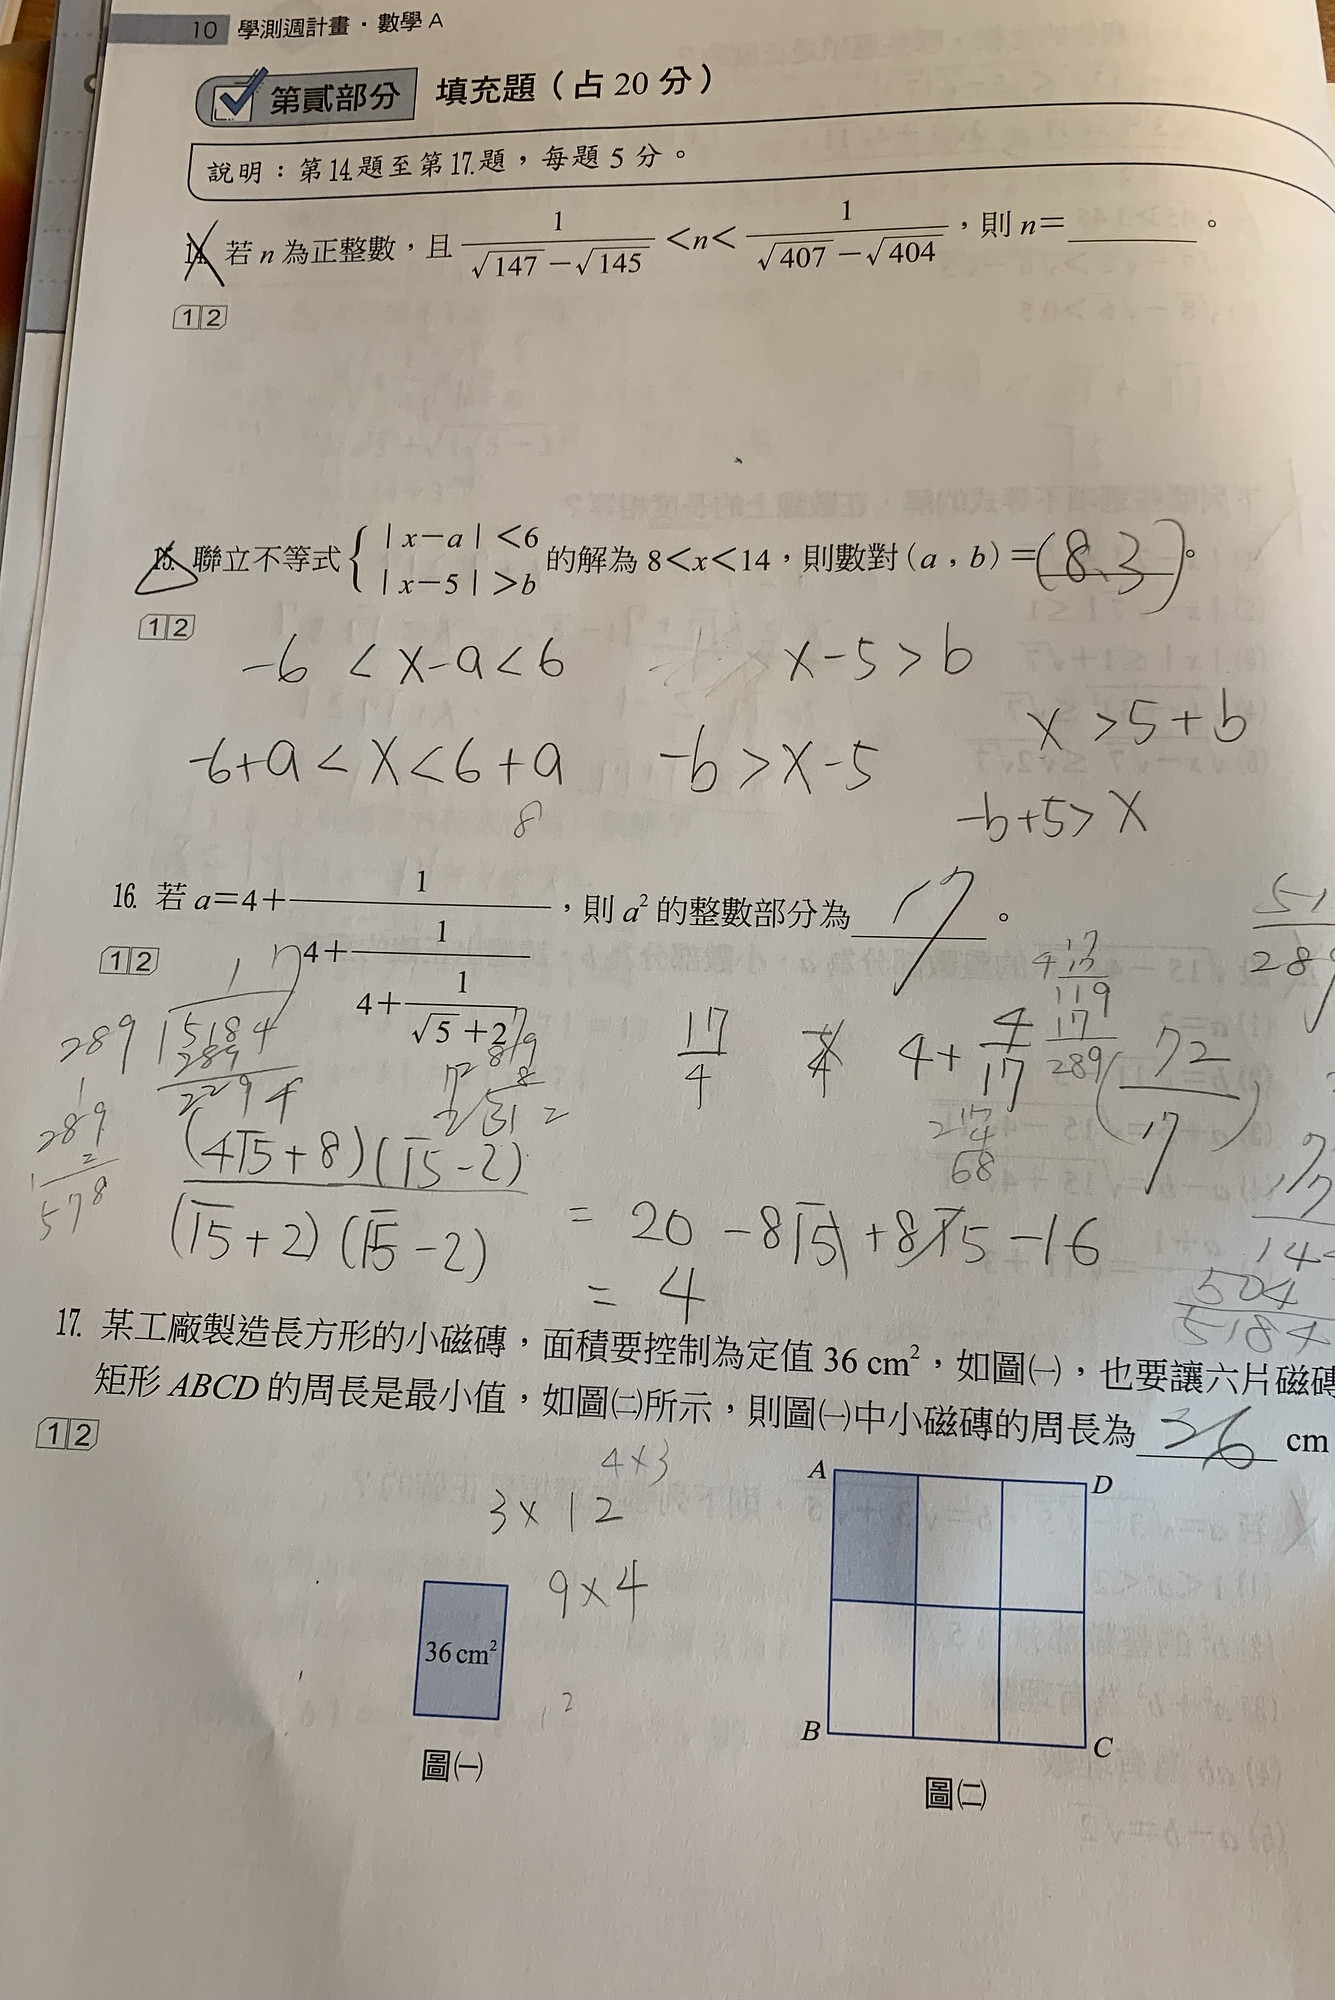 10 學測週計畫．數學 A
第貳部分 填充題（占 20 分）
說明：第14.題至第17.題，每題 5 分。
14. 若 n 為正整數，且 1/(√147 −√145) <n< 1/(√407 −√404)，則 n=______。
1 2
15. 聯立不等式 { |x−a|<6 |x−5|>b 的解為 8<x<14，則數對(a，b)=(8,3)。
1 2
-6 < x-a < 6   x-5 > b
x > 5+b
-6+a < x < 6+a   -b > x-5
8   -b+5 > x
16. 若 a=4+1/(4+1/(4+1/(√5+2)))，則 a² 的整數部分為 17。
1 2
17/4   4+4/17   72/17
289 5184
289
2294
289
2
578
17
17
119
17
289
17
4
68
(4√5+8)(√5-2)
(√5+2)(√5-2)
= 20 -8√5 +8√5 -16
= 4
504
5184
17. 某工廠製造長方形的小磁磚，面積要控制為定值 36 cm²，如圖㈠，也要讓六片磁磚
矩形 ABCD 的周長是最小值，如圖㈡所示，則圖㈠中小磁磚的周長為 36 cm
1 2
4×3
3×12
9×4
A D
36 cm²
B C
圖㈠
圖㈡